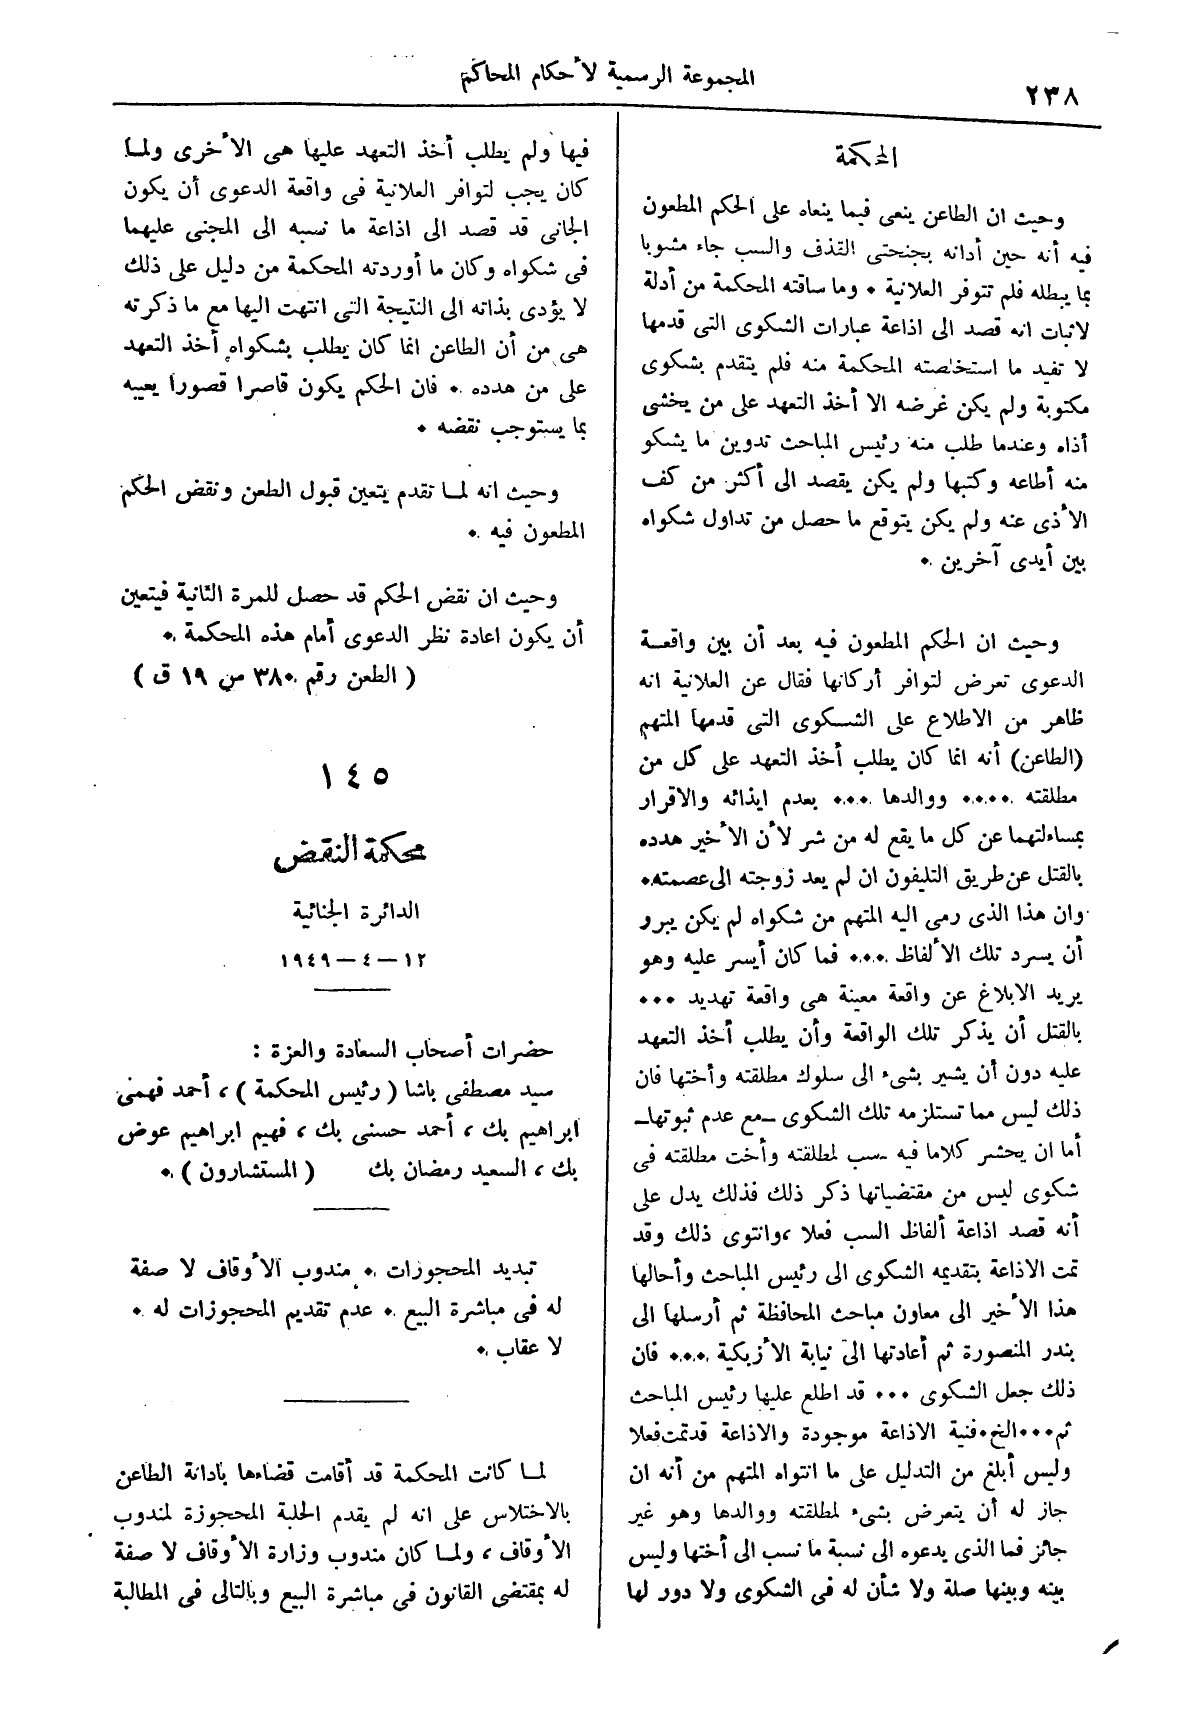 ٢٣٨
المجموعة الرسمية لأحكام المحاكم
المحكمة
وحيث ان الطاعن ينعى فيما ينعاه على الحكم المطعون
فيه أنه حين أدانه بجنحتى القذف والسب جاء مشوبا
بما يبطله فلم تتوفر العلانية • وما ساقته المحكمة من أدلة
لاثبات انه قصد الى اذاعة عبارات الشكوى التى قدمها
لا تفيد ما استخلصته المحكمة منه فلم يتقدم بشكوى
مكتوبة ولم يكن غرضه الا أخذ التعهد على من يخشى
أذاه وعندما طلب منه رئيس المباحث تدوين ما يشكو
منه أطاعه وكتبها ولم يكن يقصد الى أكثر من كف
الأذى عنه ولم يكن يتوقع ما حصل من تداول شكواه
بين أيدى آخرين •
وحيث ان الحكم المطعون فيه بعد أن بين واقعة
الدعوى تعرض لتوافر أركانها فقال عن العلانية انه
ظاهر من الاطلاع على الشكوى التى قدمها المتهم
(الطاعن) أنه انما كان يطلب أخذ التعهد على كل من
مطلقته •••• ووالدها ••• بعدم ايذائه والاقرار
بمساءلتهما عن كل ما يقع له من شر لأن الأخير هدده
بالقتل عن طريق التليفون ان لم يعد زوجته الى عصمته•
وان هذا الذى رمى اليه المتهم من شكواه لم يكن يبرر
أن يسرد تلك الألفاظ ••• فما كان أيسر عليه وهو
يريد الابلاغ عن واقعة معينة هى واقعة تهديد •••
بالقتل أن يذكر تلك الواقعة وأن يطلب أخذ التعهد
عليه دون أن يشير بشىء الى سلوك مطلقته وأختها فان
ذلك ليس مما تستلزمه تلك الشكوى –مع عدم ثبوتها–
أما ان يحشر كلاما فيه سب لمطلقته وأخت مطلقته فى
شكوى ليس من مقتضياتها ذكر ذلك فذلك يدل على
أنه قصد اذاعة ألفاظ السب فعلا ، وانتوى ذلك وقد
تمت الاذاعة بتقديمه الشكوى الى رئيس المباحث وأحالها
هذا الأخير الى معاون مباحث المحافظة ثم أرسلها الى
بندر المنصورة ثم أعادتها الى نيابة الأزبكية ••• فان
ذلك جعل الشكوى ••• قد اطلع عليها رئيس المباحث
ثم•••الخ•فنية الاذاعة موجودة والاذاعة قدتمت فعلا
وليس أبلغ من التدليل على ما انتواه المتهم من أنه ان
جاز له أن يتعرض بشىء لمطلقته ووالدها وهو غير
جائز فما الذى يدعوه الى نسبة ما نسب الى أختها وليس
بينه وبينها صلة ولا شأن له فى الشكوى ولا دور لها
فيها ولم يطلب أخذ التعهد عليها هى الأخرى ولما
كان يجب لتوافر العلانية فى واقعة الدعوى أن يكون
الجانى قد قصد الى اذاعة ما نسبه الى المجنى عليهما
فى شكواه وكان ما أوردته المحكمة من دليل على ذلك
لا يؤدى بذاته الى النتيجة التى انتهت اليها مع ما ذكرته
هى من أن الطاعن انما كان يطلب بشكواه أخذ التعهد
على من هدده • فان الحكم يكون قاصرا قصورا يعيبه
بما يستوجب نقضه •
وحيث انه لما تقدم يتعين قبول الطعن ونقض الحكم
المطعون فيه •
وحيث ان نقض الحكم قد حصل للمرة الثانية فيتعين
أن يكون اعادة نظر الدعوى أمام هذه المحكمة •
( الطعن رقم ٣٨٠ س ١٩ ق )
١٤٥
محكمة النقض
الدائرة الجنائية
١٢ – ٤ – ١٩٤٩
حضرات أصحاب السعادة والعزة :
سيد مصطفى باشا ( رئيس المحكمة ) ، أحمد فهمى
ابراهيم بك ، أحمد حسنى بك ، فهيم ابراهيم عوض
بك ، السعيد رمضان بك ( المستشارون ) •
تبديد المحجوزات • مندوب الأوقاف لا صفة
له فى مباشرة البيع • عدم تقديم المحجوزات له •
لا عقاب •
لما كانت المحكمة قد أقامت قضاءها بادانة الطاعن
بالاختلاس على انه لم يقدم الحلبة المحجوزة لمندوب
الأوقاف ، ولما كان مندوب وزارة الأوقاف لا صفة
له بمقتضى القانون فى مباشرة البيع وبالتالى فى المطالبة